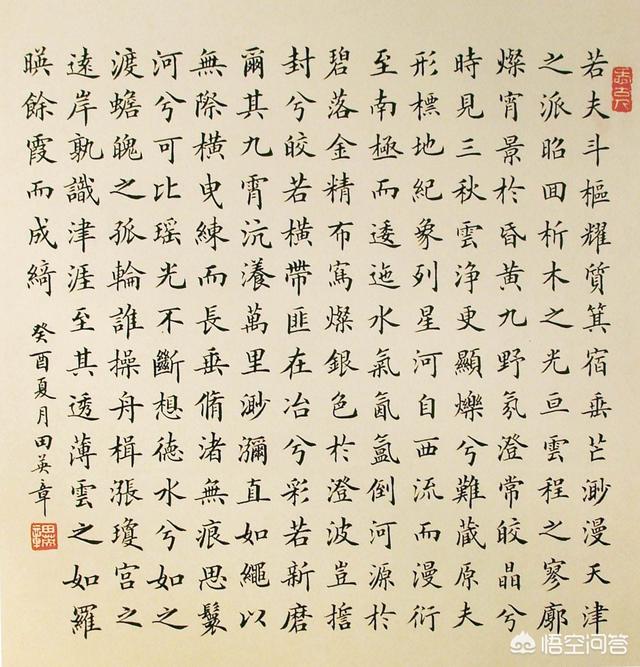 若夫斗樞耀質箕宿垂芒渺漫天津
之派昭回析木之光亘雲程之寥廓
燦宵景於昏黃九野氛澄常皎晶兮
時見三秋雲淨更顯爍兮難藏原夫
形標地紀象列星河自西流而漫衍
至南極而逶迤水氣氤氳倒河源於
碧落金精布寫燦銀色於澄波豈擔
封兮皎若橫帶匪在冶兮彩若新磨
爾其九霄沆瀁萬里渺瀰直如繩以
無際橫曳練而長垂脩渚無痕思鬟
河兮可比瑤光不斷想德水兮如之
渡蟾魄之孤輪誰操舟楫漲瓊宮之
遠岸孰識津涯至其透薄雲之如羅
暎餘霞而成綺
癸酉夏月田英章
悟空问答